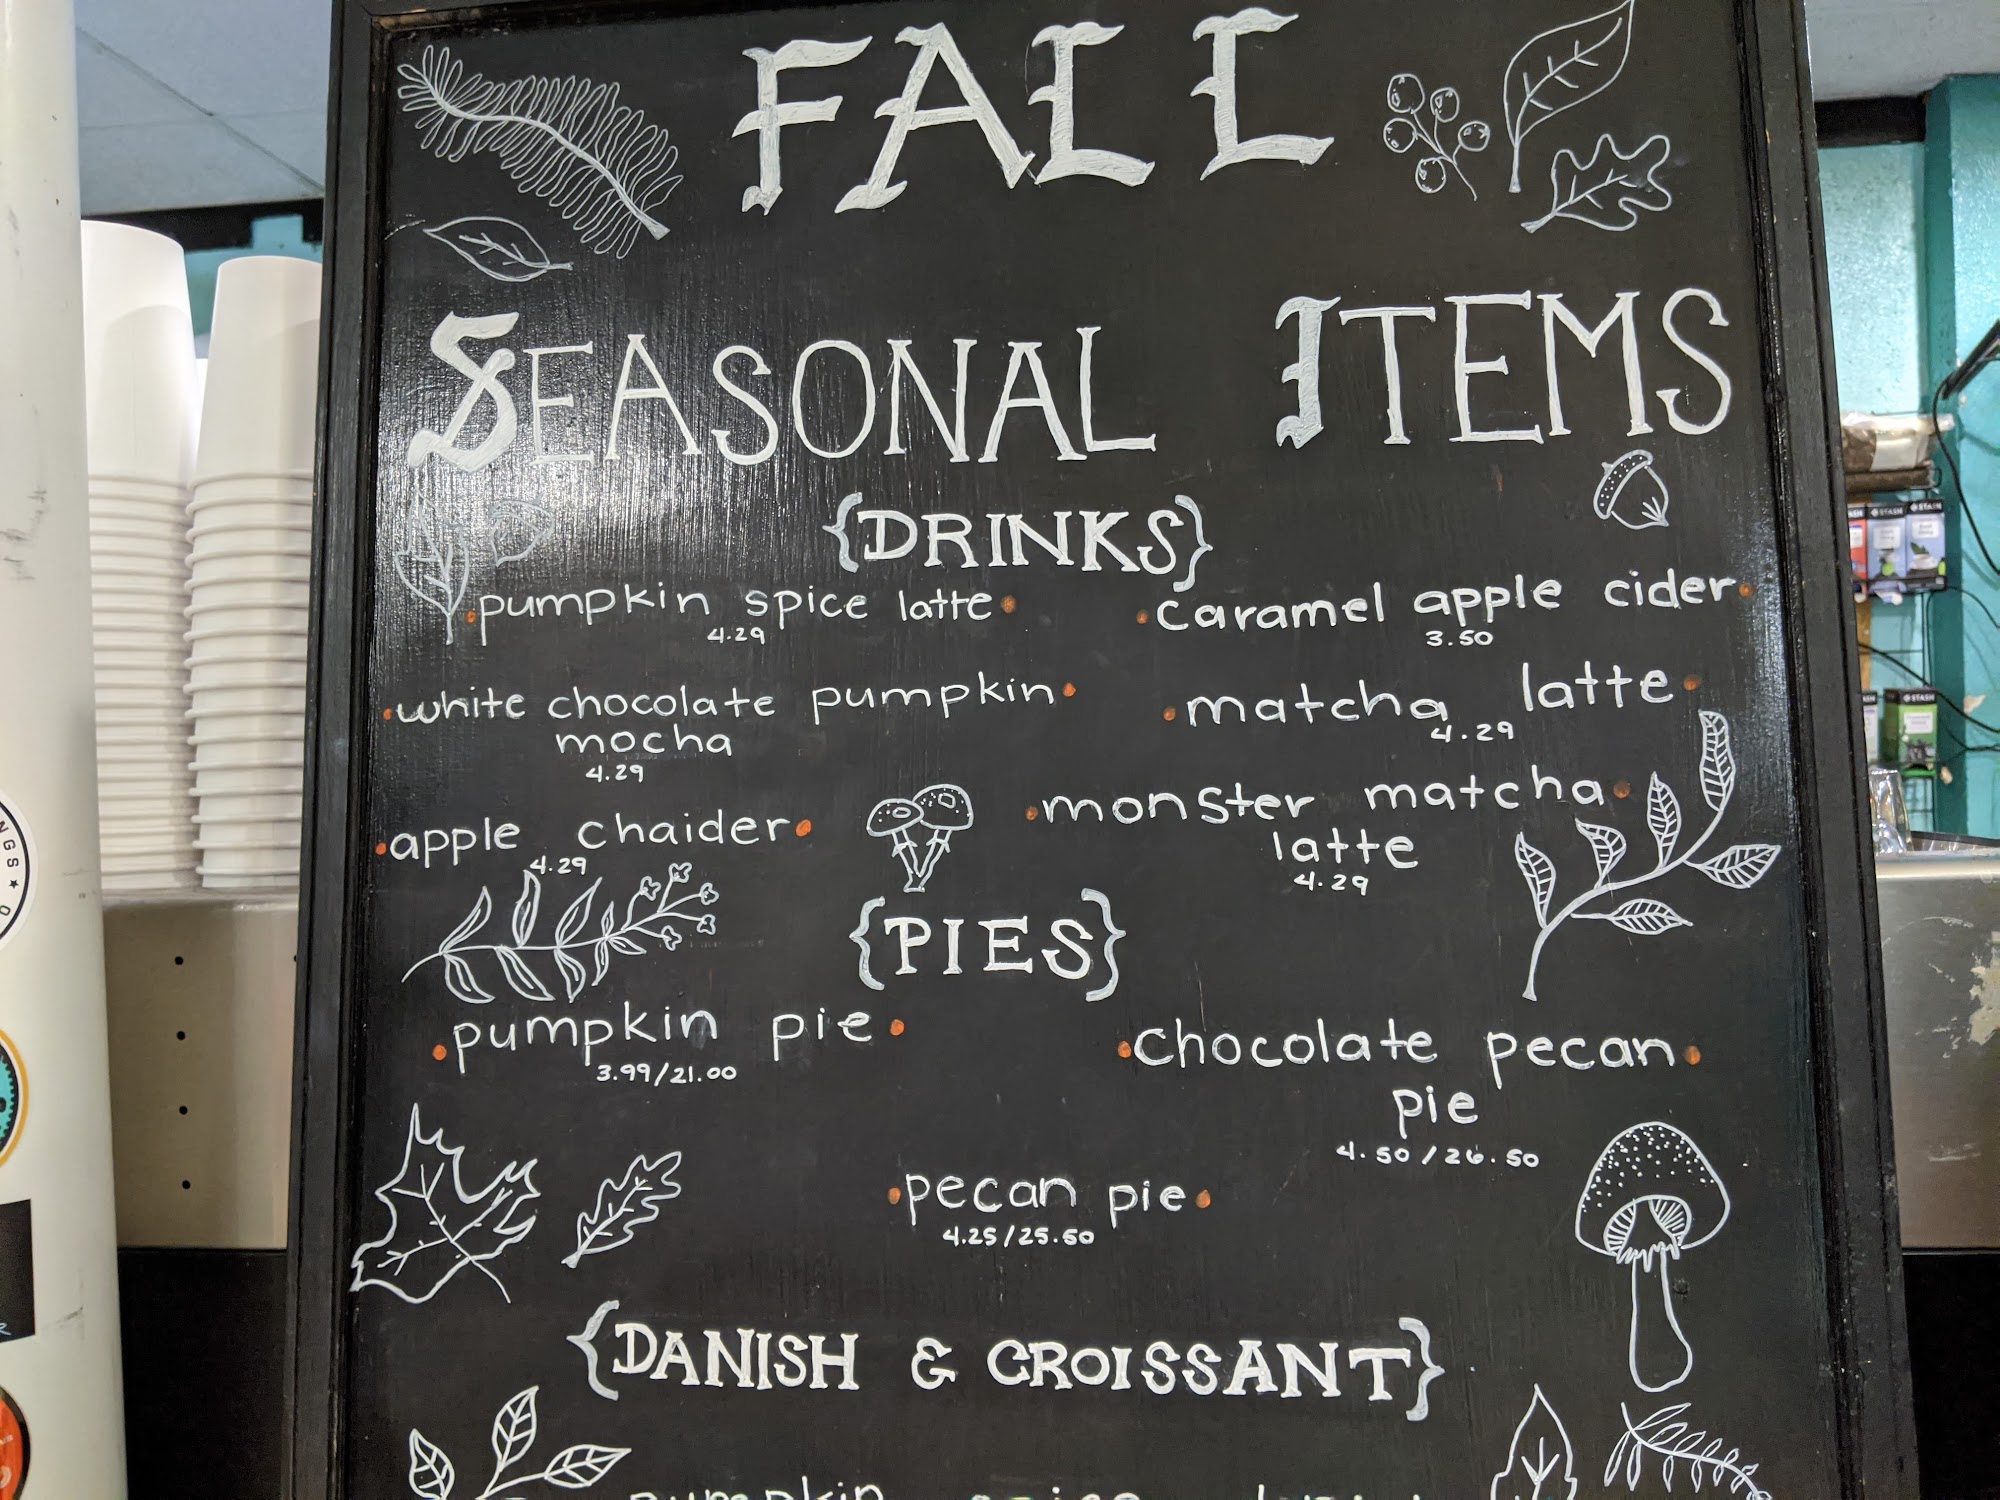 FALL
SEASONAL ITEMS
{DRINKS}
pumpkin spice latte
4.29
caramel apple cider
3.50
white chocolate pumpkin
mocha
4.29
matcha latte
4.29
apple chaider
4.29
monster matcha
latte
4.29
{PIES}
pumpkin pie
3.99/21.00
chocolate pecan
pie
4.50/26.50
pecan pie
4.25/25.50
{DANISH & CROISSANT}
pumpkin spice
STASH
STASH
STASH
NGS